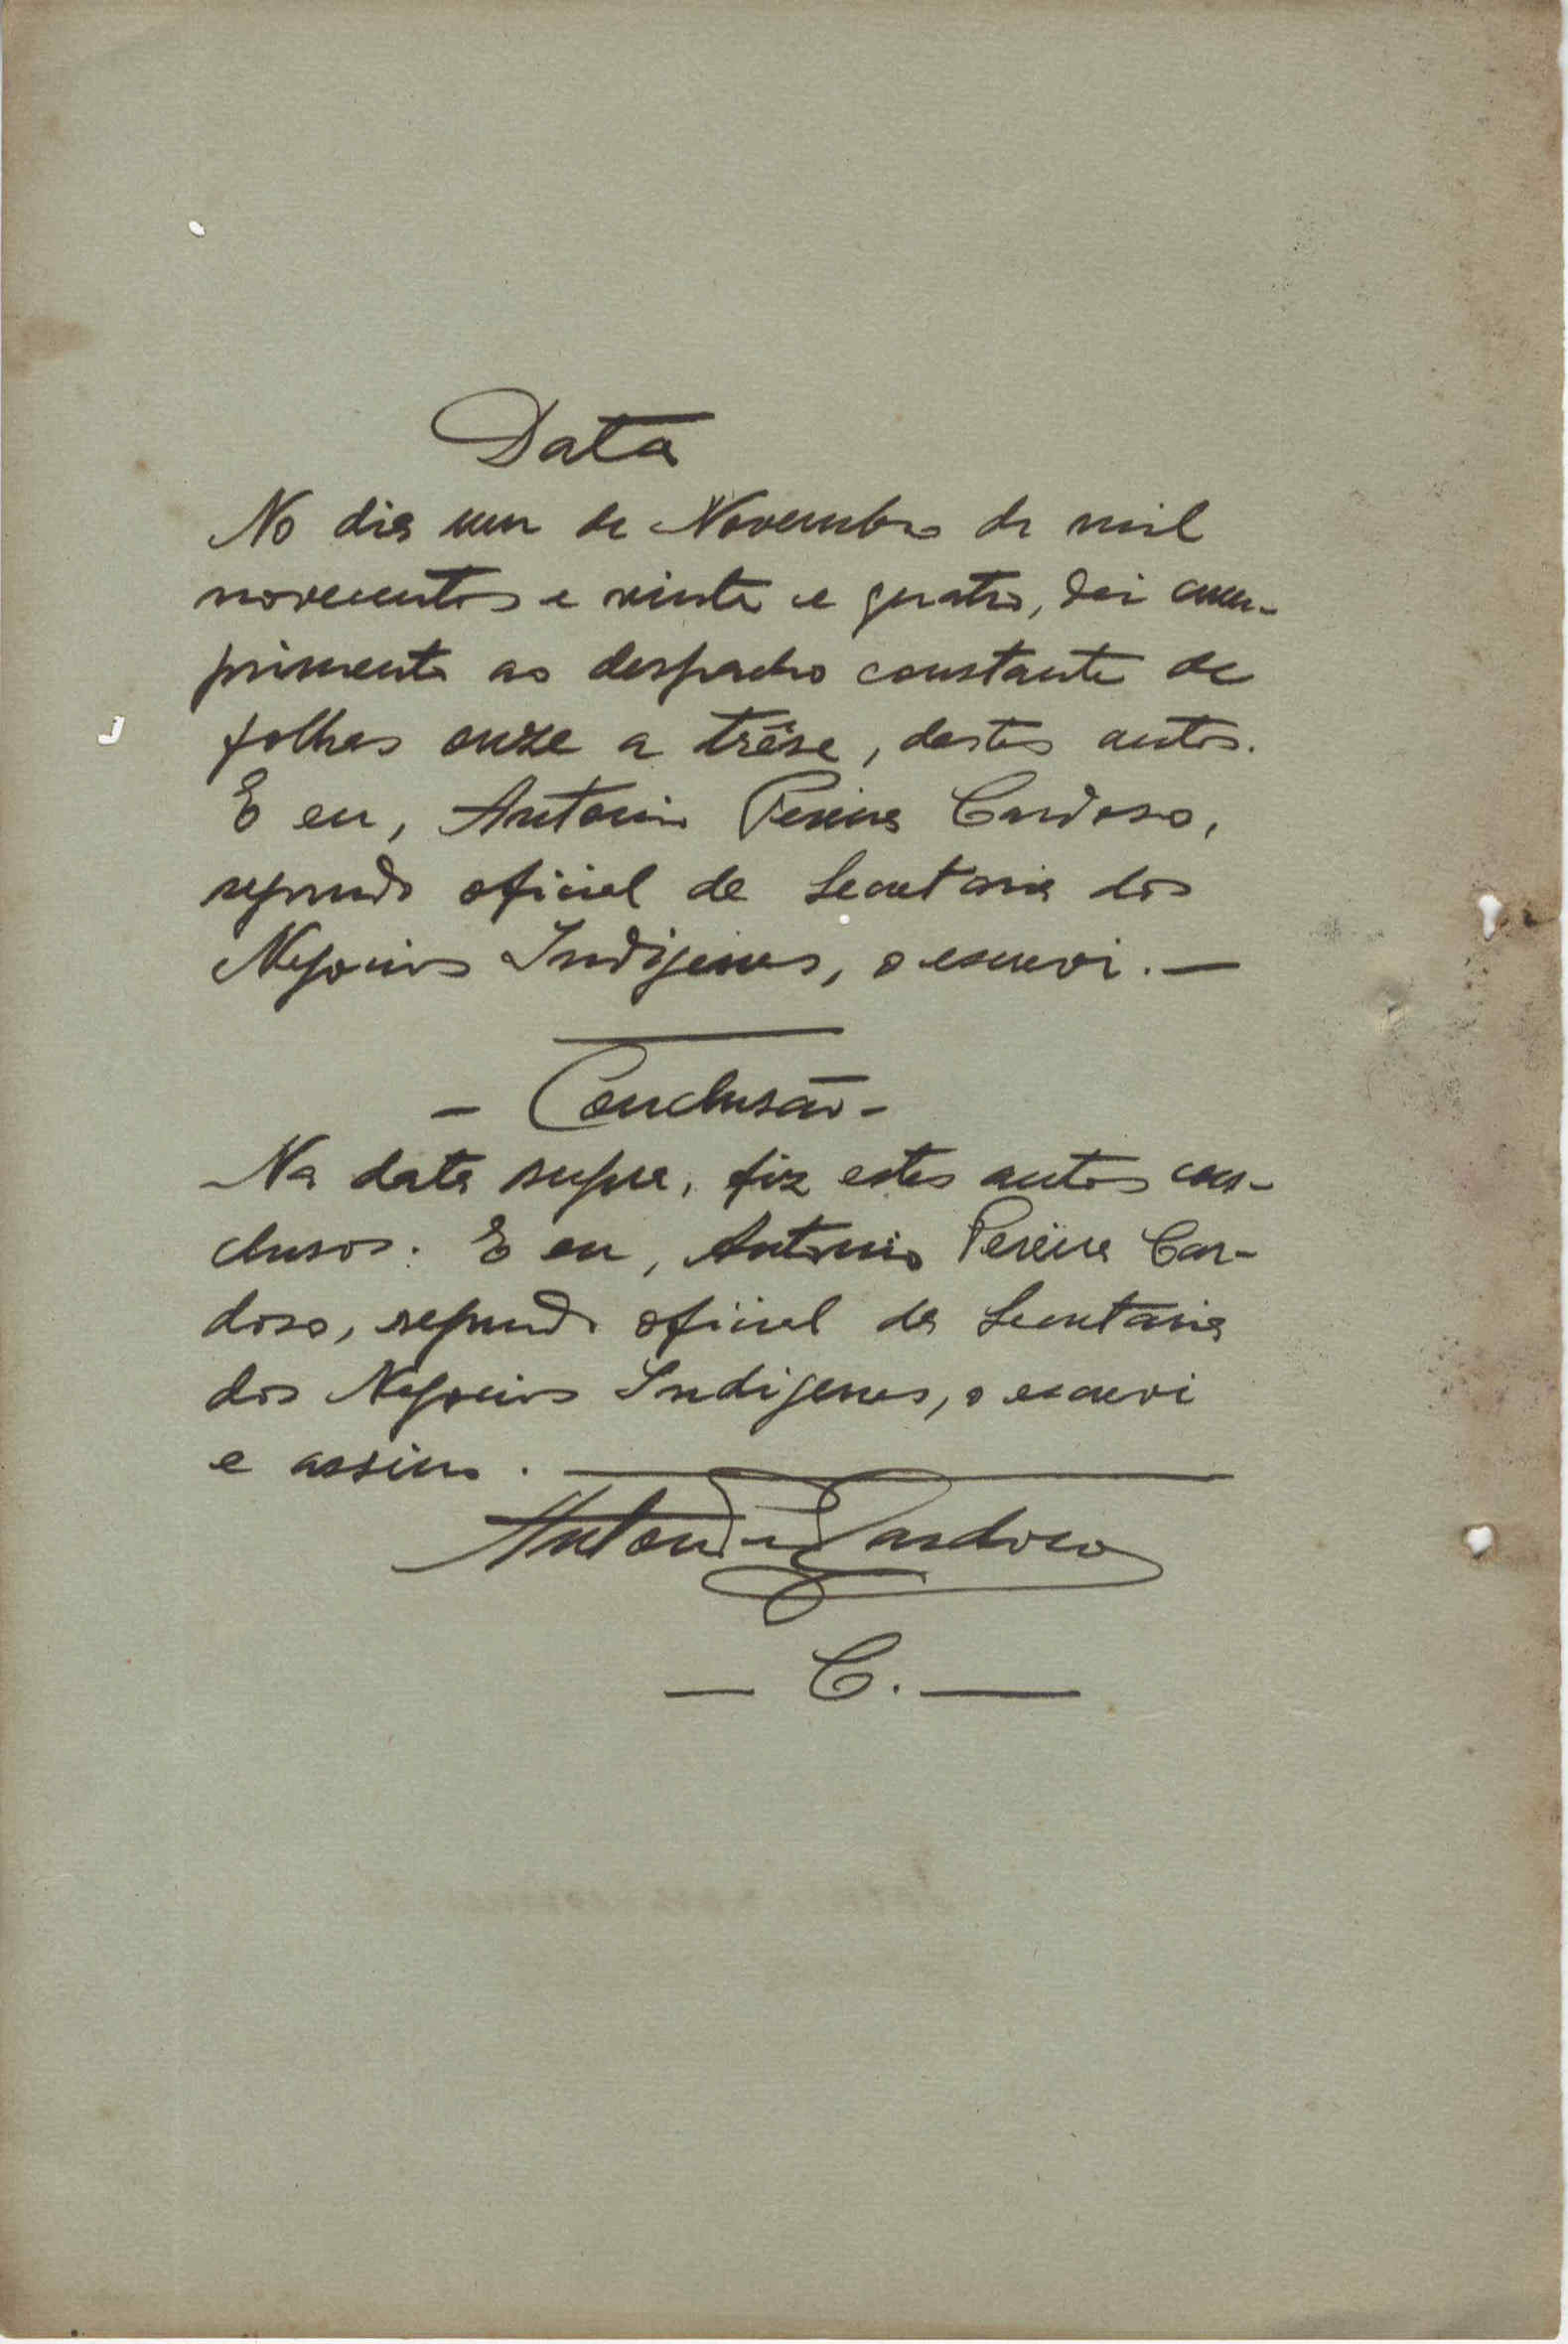 Data
No dia um de Novembro de mil
novecentos e vinte e quatro, dei cum-
primento ao despacho constante de
folhas onze a trêse, destes autos.
E eu, Antonio Pereira Cardoso,
segundo oficial da Secretaria dos
Negocios Indigenas, o escrevi. —
- Conclusão -
Na data supra, fiz estes autos con-
clusos. E eu, Antonio Pereira Car-
doso, segundo oficial da Secretaria
dos Negocios Indigenas, o escrevi
e assino. —
Antonio Cardoso
— C. —